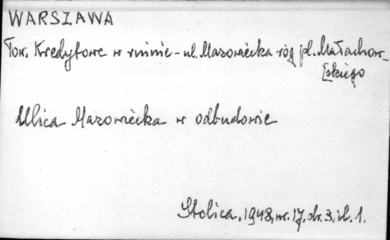 WARSZAWA
Tow. Kredytowe w ruinie - ul. Mazowiecka róg pl. Małachow-
[skiego
Ulica Mazowiecka w odbudowie
Stolica, 1948, nr. 17, str. 3, il. 1.